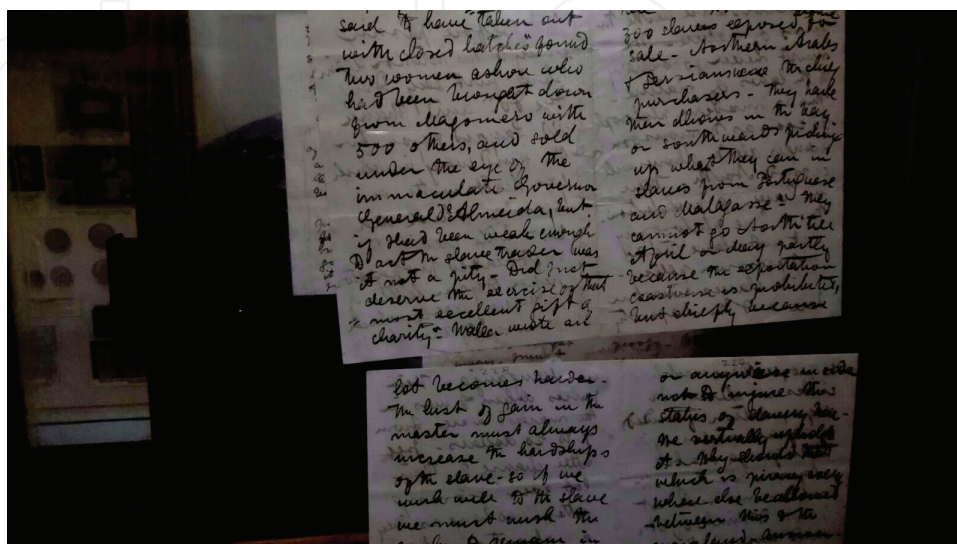 said to have "taken out
with closed hatches" found
two women ashore who
had been brought down
from Magomero with
500 others, and sold
under the eye of the
immaculate Governor
General D'Almeida, but
if I had been weak enough
to act the slave trader was
it not a pity - Did I not
deserve the exercise of that
"most excellent gift of
charity" - Waller wrote all
300 slaves exposed for
sale - Northern Arabs
& Persians were the chief
purchasers - They have
their dhows in the bay
or southwards picking
up what they can in
slaves from Portuguese
and Malagasse - They
cannot go North till
April or May partly
because the exportation
coastwise is prohibited,
but chiefly because
lot becomes harder -
The lust of gain in the
master must always
increase the hardships
of the slave - so if we
wish well to the slave
we must wish the
to remain in
226
or anywhere in order
not to injure the
status of slavery here -
we virtually uphold
it - Why should that
which is piracy every
where else be allowed
between this & the
mainland -